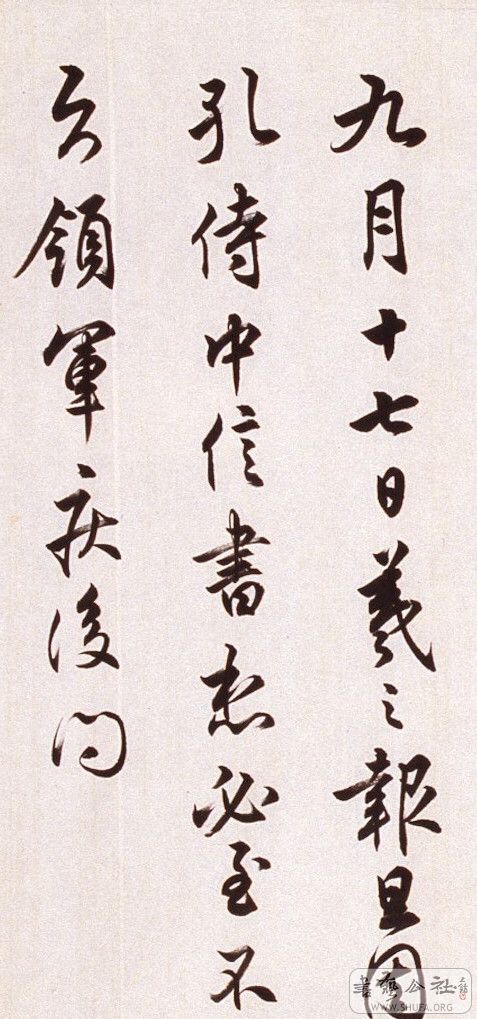 九月十七日羲之報且因
孔侍中信書想必至不
知領軍疾後問
書法公社
WWW.SHUFA.ORG